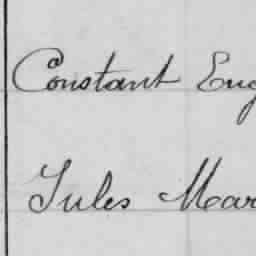 Constant Eug
Jules Mar